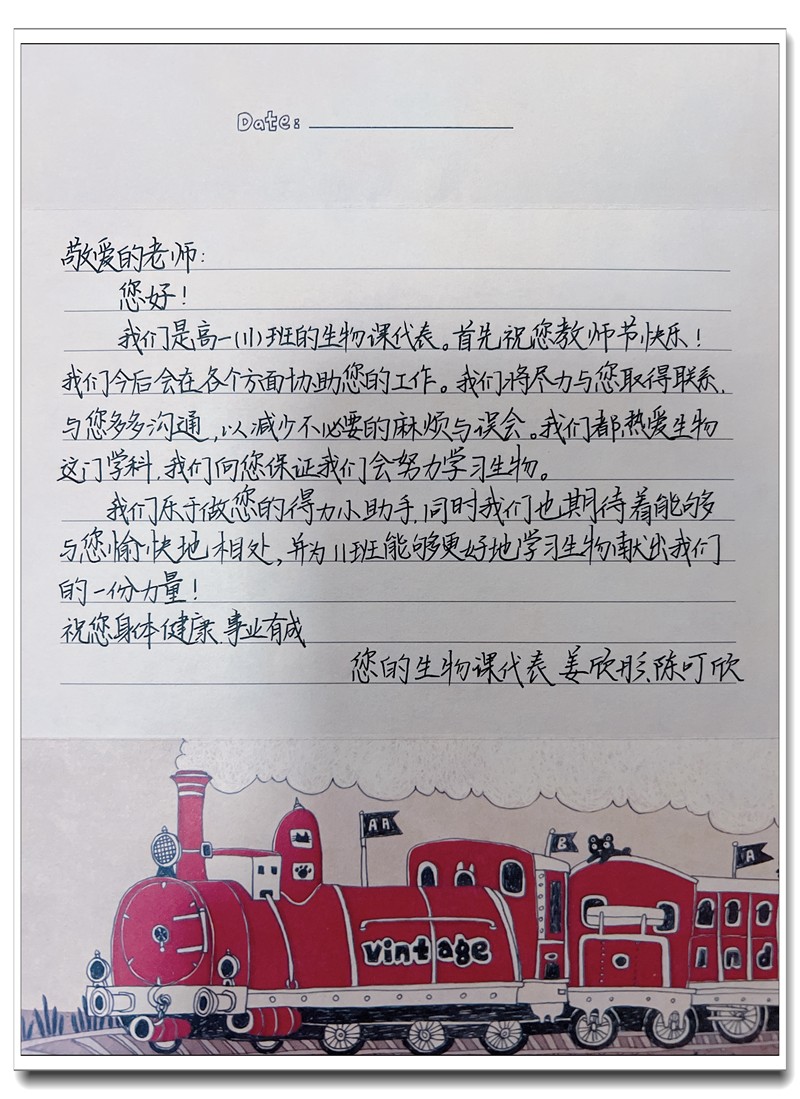 Date:
敬爱的老师:
您好!
我们是高一(11)班的生物课代表。首先祝您教师节快乐!
我们今后会在各个方面协助您的工作。我们将尽力与您取得联系,
与您多多沟通,以减少不必要的麻烦与误会。我们都热爱生物
这门学科,我们向您保证我们会努力学习生物。
我们乐于做您的得力小助手,同时我们也期待着能够
与您愉快地相处,并为11班能够更好地学习生物献出我们
的一份力量!
祝您身体健康,事业有成
您的生物课代表 姜欣彤、陈叮欣
AA
B
A
vintage
Ind